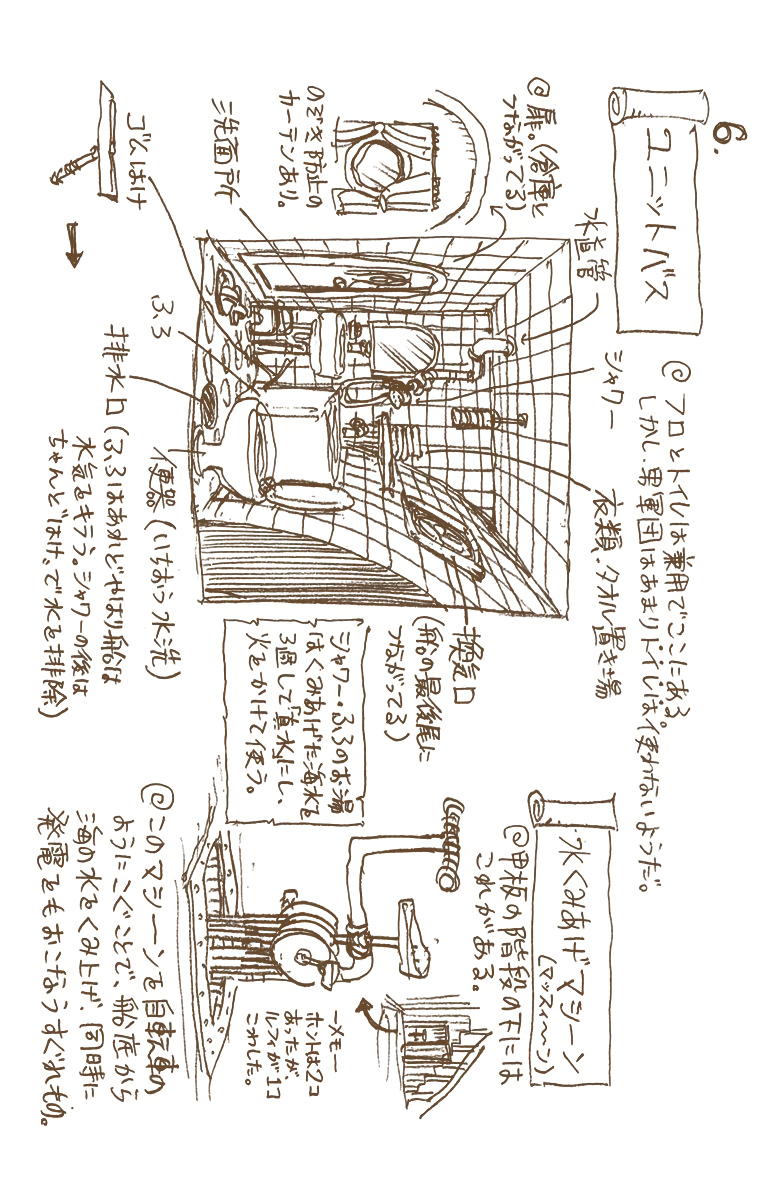 6.
ユニットバス
@フロとトイレは兼用でここにある
しかし、男軍団はあまりトイレは使わないようだ。
@扉。(倉庫と
つながってる)
のぞき防止の
カーテンあり。
洗面所
ゴムはけ
水道管
シャワー
衣類、タオル置き場
ふろ
排水口(ふろはあれどやはり船は
水気をキラう。シャワーの後は
ちゃんと"はけ"で水を排除)
便器(いちおう水洗)
換気口
(船の最後尾に
つながってる)
シャワー・ふろのお湯
はくみあげた海水を
ろ過して「真水」にし、
火をかけて使う。
水くみあげマシーン
(マッスィ〜ン)
@甲板の階段の下には
これがある。
ーメモー
ホントは2コ
あったが、
ルフィが1コ
こわした。
@このマシーンを自転車の
ようにこぐことで、船底から
海の水をくみ上げ、同時に
発電をもおこなうすぐれもの。